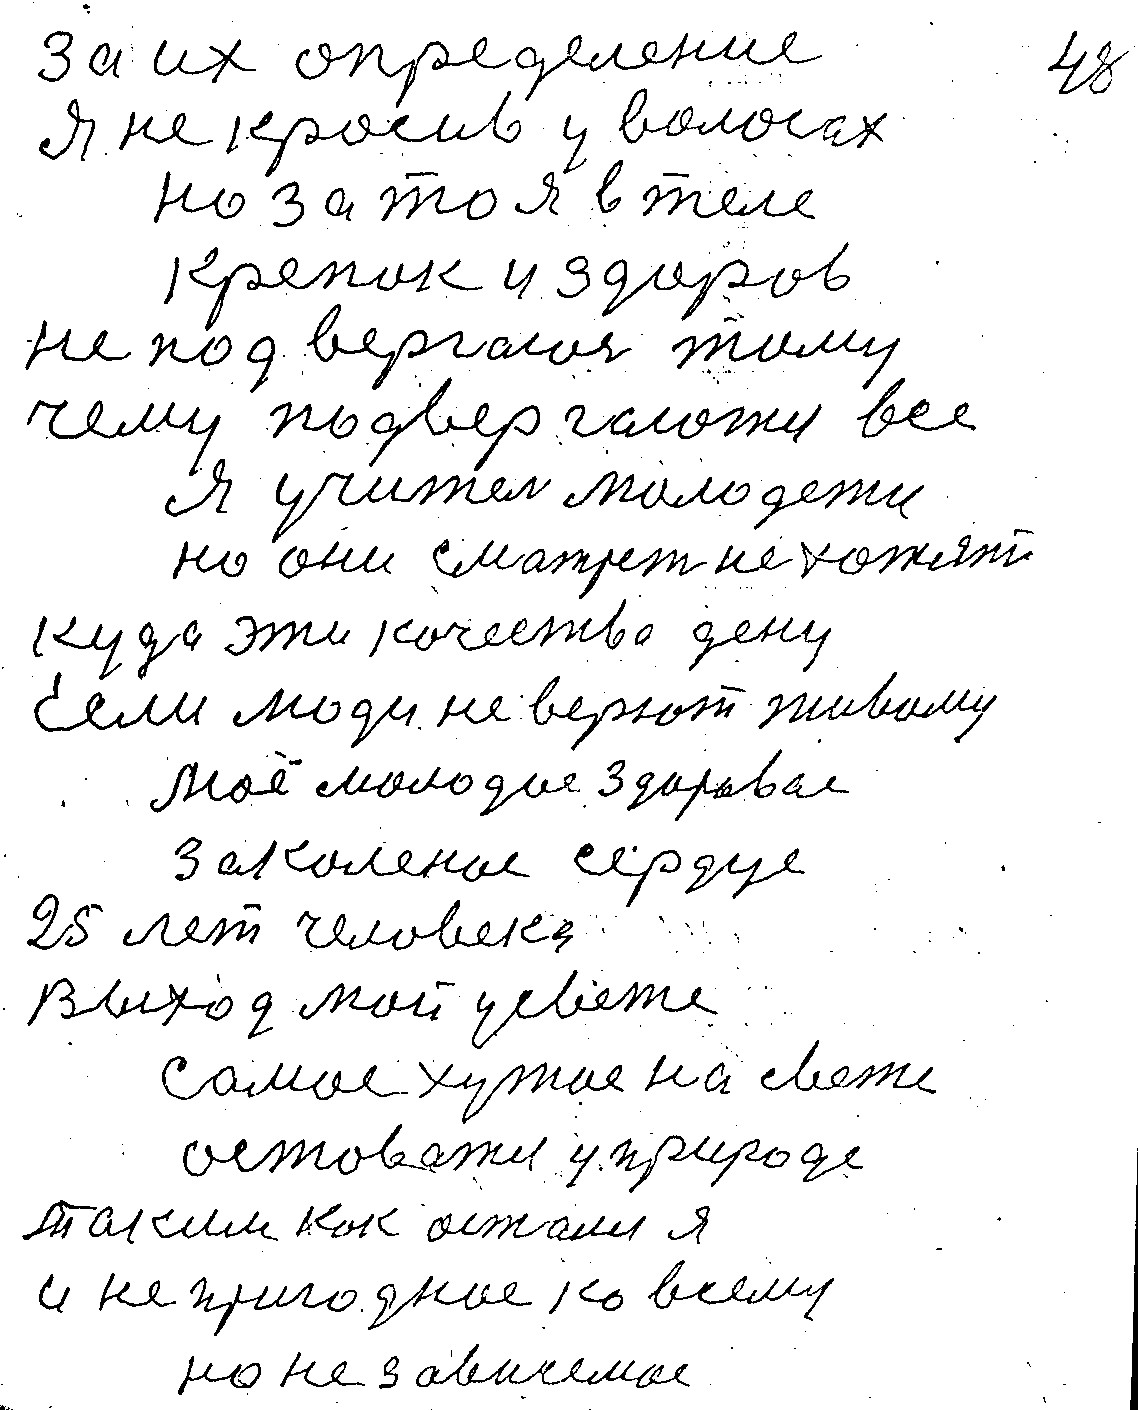 За их определение 48
Я не красив у волосах
но за то я в теле
крепок и здоров
не подвергался тому
чему подвергалоти все
Я учител молодежи
но они сматрет не хотят
куда эти качества дену
Если люди не верют живому
Моё молодое здоровае
Заколеное сердце
25 лет человека
Выход мой у свете
Самое хужое на свете
остоватти у природе
таким как осталя я
и не пригодное ко всему
но не зависемое